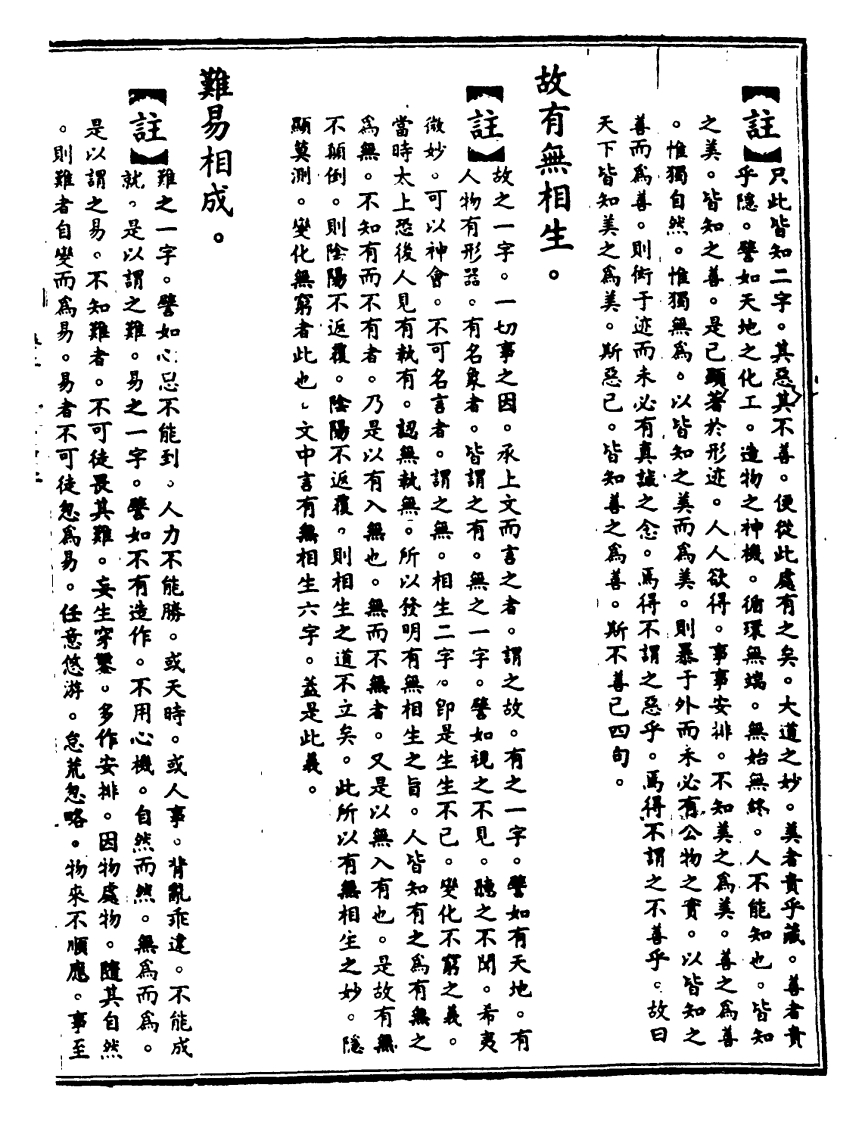 【註】只此皆知二字。其惡其不善。便從此處有之矣。大道之妙。美者貴乎藏。善者貴
乎隱。譬如天地之化工。造物之神機。循環無端。無始無終。人不能知也。皆知
之美。皆知之善。是已顯著於形迹。人人欲得。事事安排。不知美之為美。善之為善
。惟獨自然。惟獨無為。以皆知之美而為美。則暴于外而未必有公物之實。以皆知之
善而為善。則衒于迹而未必有真誠之念。焉得不謂之惡乎。焉得不謂之不善乎。故曰
天下皆知美之為美。斯惡已。皆知善之為善。斯不善已四句。
故有無相生。
【註】故之一字。一切事之因。承上文而言之者。謂之故。有之一字。譬如有天地。有
人物有形器。有名象者。皆謂之有。無之一字。譬如視之不見。聽之不聞。希夷
微妙。可以神會。不可名言者。謂之無。相生二字。即是生生不已。變化不窮之義。
當時太上恐後人見有執有。認無執無。所以發明有無相生之旨。人皆知有之為有無之
為無。不知有而不有者。乃是以有入無也。無而不無者。又是以無入有也。是故有無
不顛倒。則陰陽不返覆。陰陽不返覆。則相生之道不立矣。此所以有無相生之妙。隱
顯莫測。變化無窮者此也。文中言有無相生六字。蓋是此義。
難易相成。
【註】難之一字。譬如心思不能到。人力不能勝。或天時。或人事。背亂乖違。不能成
就。是以謂之難。易之一字。譬如不有造作。不用心機。自然而然。無為而為。
是以謂之易。不知難者。不可徒畏其難。妄生穿鑿。多作安排。因物處物。隨其自然
。則難者自變而為易。易者不可徒忽為易。任意悠游。怠荒忽略。物來不順應。事至